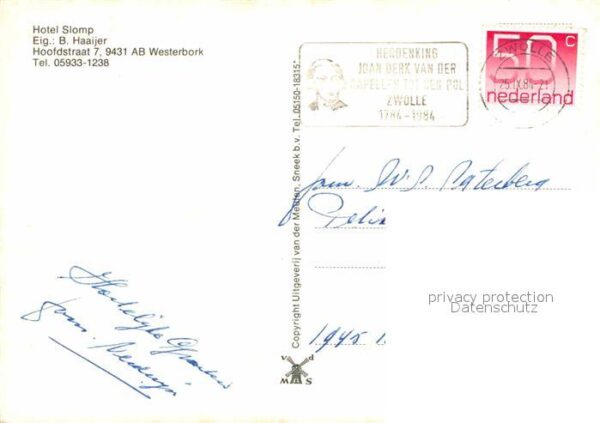 Hotel Slomp
Eig.: B. Haaijer
Hoofdstraat 7, 9431 AB Westerbork
Tel. 05933-1238
HERDENKING
JOAN DERK VAN DER
CAPELLEN TOT DEN POL
ZWOLLE
1784-1984
ZWOLLE
25.IX.84-21
50 c
nederland
Copyright Uitgeverij van der Meulen, Sneek b.v. Tel. 05150-18315*
fam.
1945
Hartelijke Groeten
fam.
privacy protection
Datenschutz
v d
M
W S